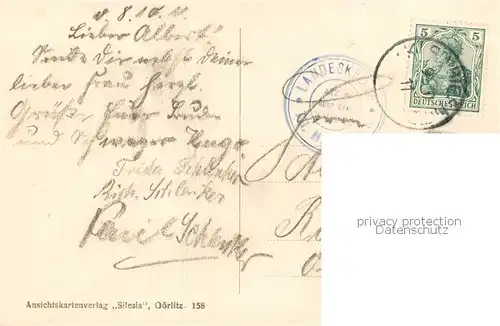 d. 8.10.11
Lieber Albert!
Sende Dir nebst Deiner
lieber Frau herzl.
Grüße Euer Bruder
und Schwager Hugo
Frida Schlenker
Rich. Schlenker
Paul Schlenker
LANDECK
5 5
DEUTSCHES REICH
privacy protection
Datenschutz
Ansichtskartenverlag „Silesia“, Görlitz. 158